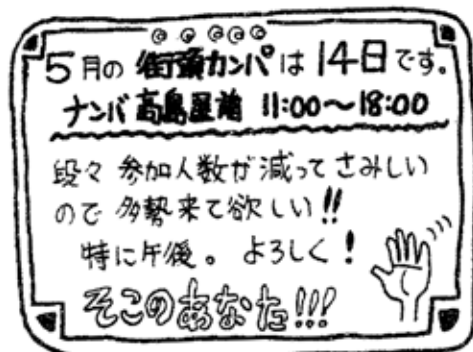 5月の 街頭カンパは 14日です。
ナンバ 高島屋前 11:00～18:00
段々 参加人数が減ってさみしい
ので 多勢来て欲しい!!
特に午後。よろしく!
そこのあなた!!!